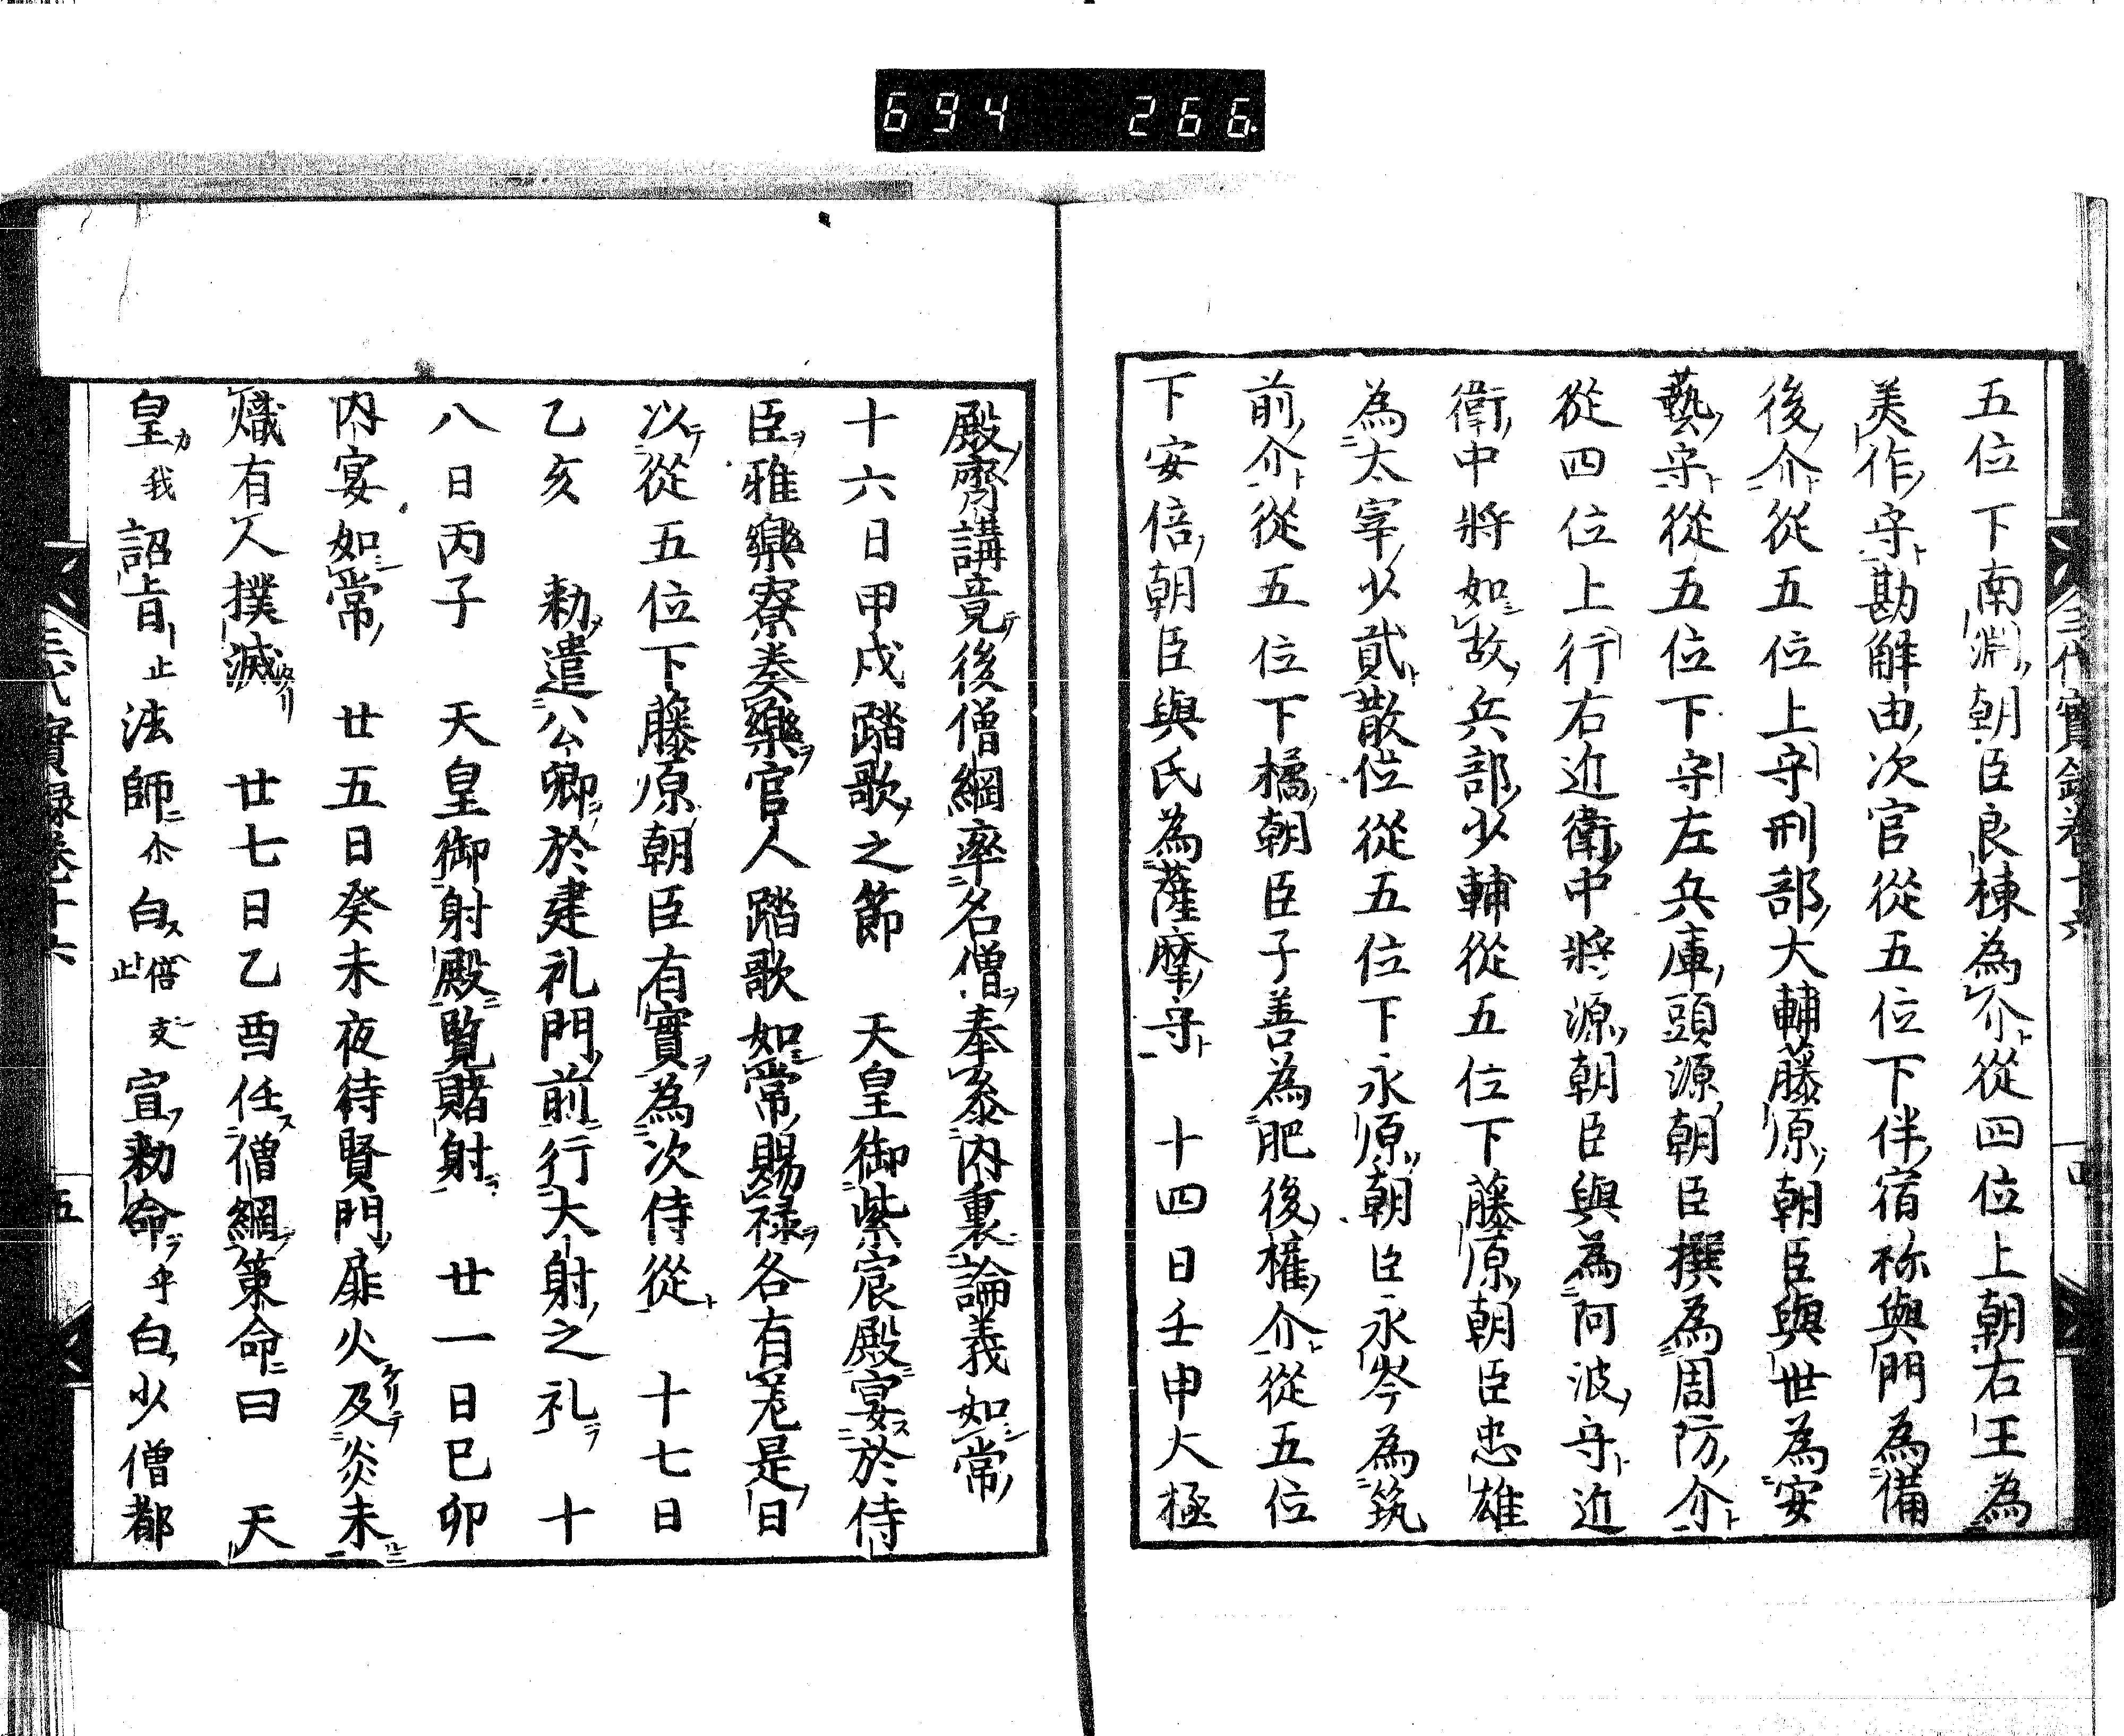 694 266
五位下南淵朝臣良棟為介從四位上朝右王為
美作守勘解由次官從五位下伴宿祢與門為備
後介從五位上守刑部大輔藤原朝臣與世為安
藝守從五位下守左兵庫頭源朝臣撰為周防介
從四位上行右近衛中將源朝臣與為阿波守近
衛中將如故兵部少輔從五位下藤原朝臣忠雄
為太宰少貳散位從五位下永原朝臣永岑為筑
前介從五位下橘朝臣子善為肥後權介從五位
下安倍朝臣與氏為薩摩守 十四日壬申大極
殿齋講竟後僧綱率名僧奉參內裏論義如常
十六日甲戌踏歌之節 天皇御紫宸殿宴於侍
臣雅樂寮奏樂官人踏歌如常賜祿各有差是日
以從五位下藤原朝臣有實為次侍從 十七日
乙亥 勅遣公卿於建礼門前行大射之礼 十
八日丙子 天皇御射殿覽賭射 廿一日己卯
內宴如常 廿五日癸未夜待賢門扉火及炎未
熾有人撲滅 廿七日乙酉任僧綱策命曰 天
皇我詔旨止法師尓白倍止支宣勅命乎白少僧都
三代實録卷十六 五